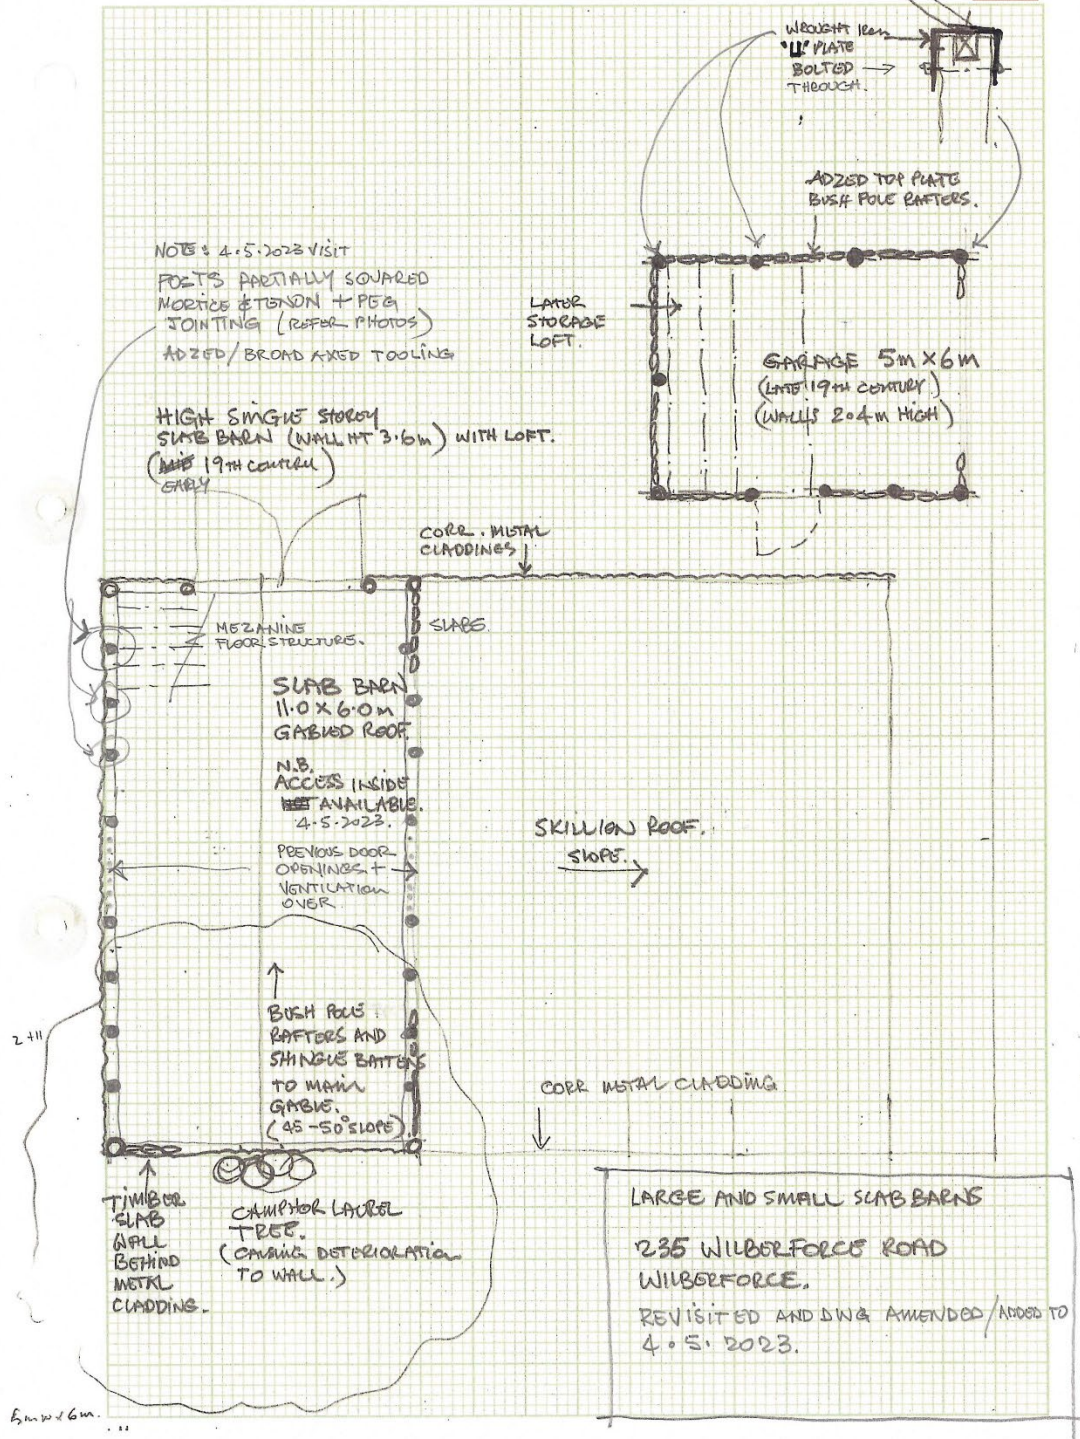 WROUGHT IRON
"U" PLATE
BOLTED
THROUGH.
ADZED TOP PLATE
BUSH POLE RAFTERS.
NOTE: 4.5.2023 VISIT
POSTS PARTIALLY SQUARED
MORTICE & TENON + PEG
JOINTING (REFER PHOTOS)
ADZED/BROAD AXED TOOLING
LATER
STORAGE
LOFT.
GARAGE 5m X 6m
(LATE 19TH CENTURY)
(WALLS 2.4m HIGH)
HIGH SINGLE STOREY
SLAB BARN (WALL HT 3.6m) WITH LOFT.
(MID 19TH CENTURY)
EARLY
CORR. METAL
CLADDINGS
MEZANINE
FLOOR STRUCTURE.
SLABS.
SLAB BARN
11.0 X 6.0m
GABLED ROOF.
N.B.
ACCESS INSIDE
NOT AVAILABLE.
4.5.2023.
PREVIOUS DOOR
OPENINGS +
VENTILATION
OVER.
SKILLION ROOF.
SLOPE.
2 +11
BUSH POLE
RAFTERS AND
SHINGLE BATTENS
TO MAIN
GABLE.
(45-50° SLOPE)
CORR METAL CLADDING
TIMBER
SLAB
WALL
BEHIND
METAL
CLADDING.
CAMPHOR LAUREL
TREE.
(CAUSING DETERIORATION
TO WALL.)
LARGE AND SMALL SLAB BARNS
235 WILBERFORCE ROAD
WILBERFORCE.
REVISITED AND DWG AMENDED/ADDED TO
4.5.2023.
5m w x 6m.